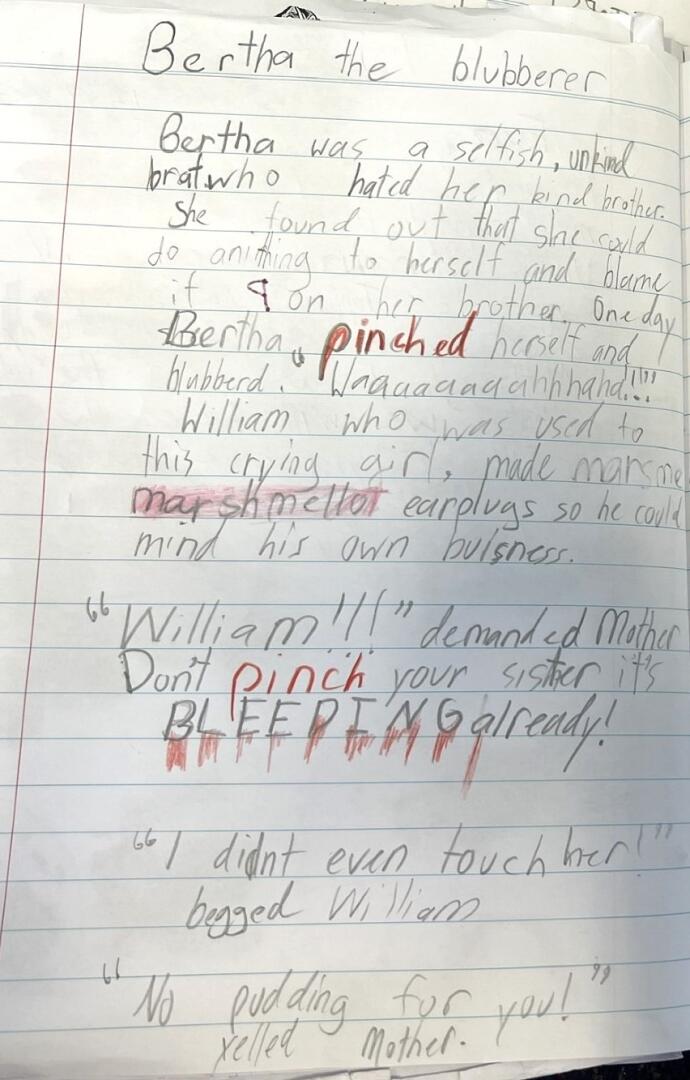 Bertha the blubberer
Bertha was a selfish, unkind
brat who hated her kind brother.
She found out that she could
do anithing to herself and blame
it on her brother. One day
Bertha pinched herself and
blubberd. "Waaaaaaaahhhahd!!"
William who was used to
this crying girl, made marsme
marshmellot earplugs so he could
mind his own buisness.
"William!!!" demanded Mother
Don't pinch your sister it's
BLEEDING already!
"I didnt even touch her!"
begged William
"No pudding for you!"
yelled Mother.